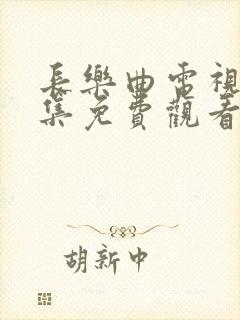 長樂曲電視
集免費觀看
胡新中